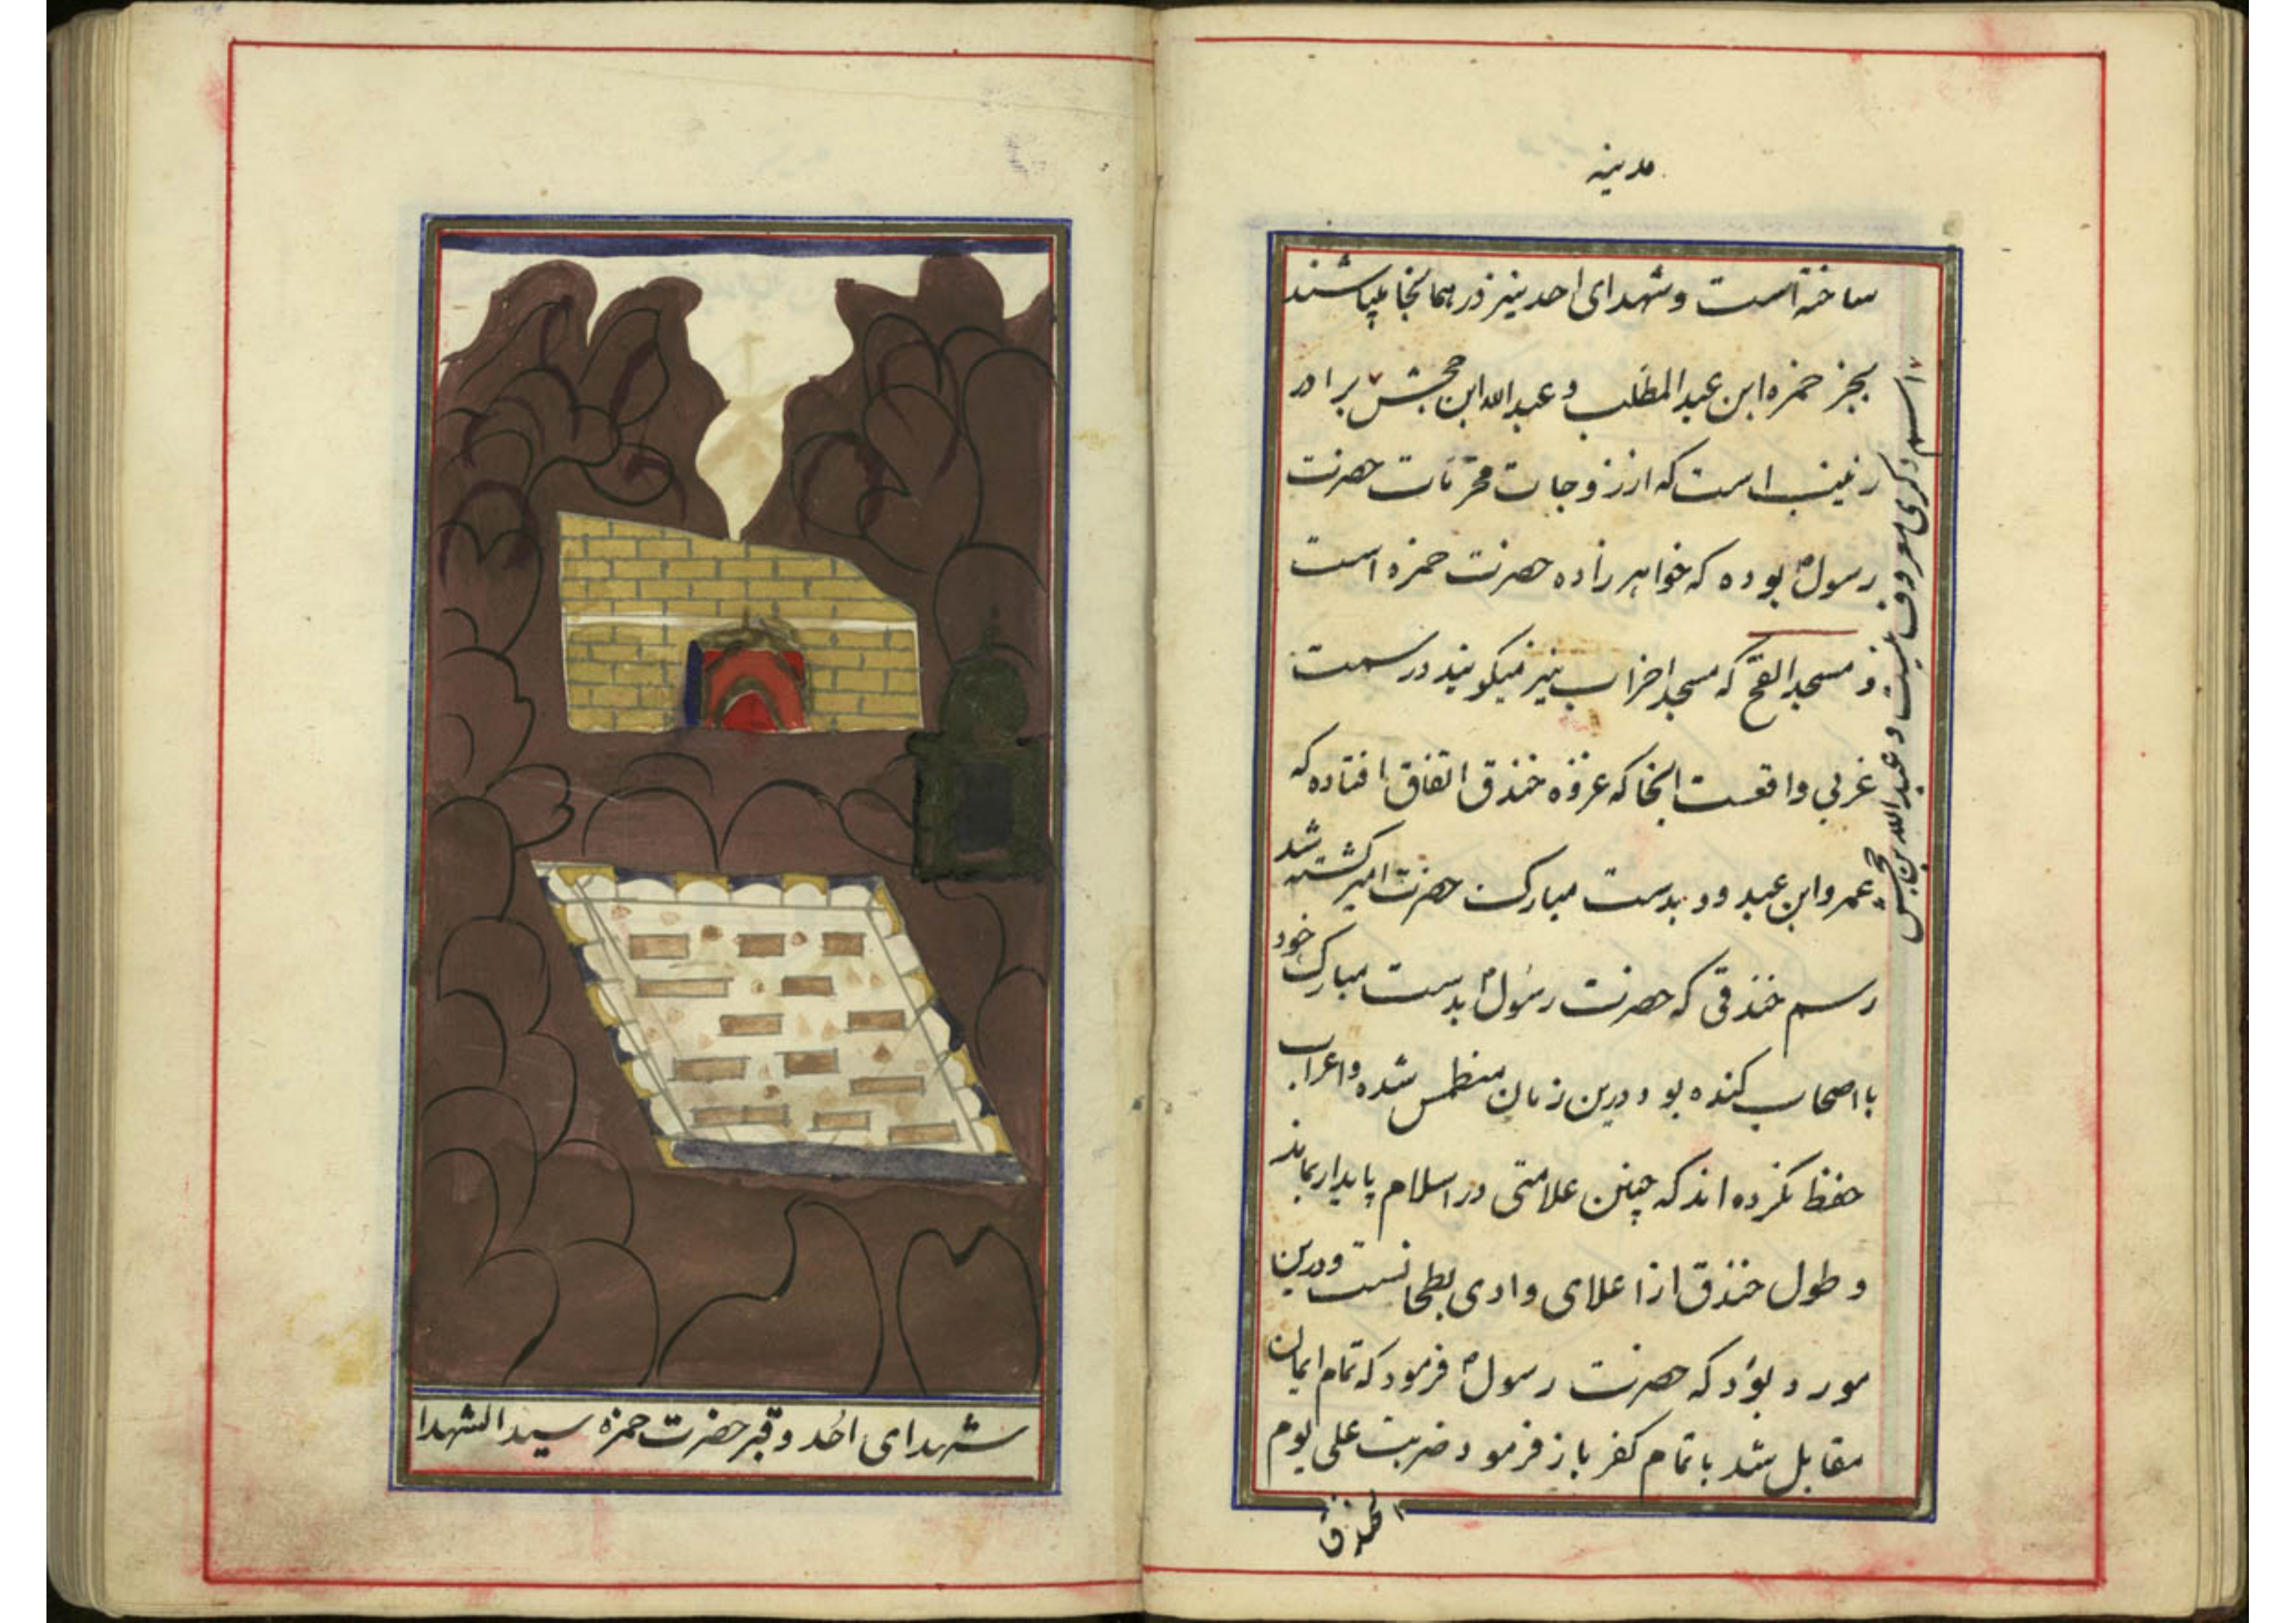 مدینه
ساخته است و شهدای احد نیز در همانجا میباشند
بجز حمزه ابن عبدالمطلب و عبدالله ابن حجش برادر
زینب است که از زوجات محترمات حضرت
رسول بوده که خواهر زاده حضرت حمزه است
و مسجد الفتح که مسجد احزاب نیز میگویند در سمت
غربی واقعست انجا که غزوه خندق اتفاق افتاده که
عمرو ابن عبدود بدست مبارک حضرت امیر کشته شد
رسم خندقی که حضرت رسول بدست مبارک خود
با اصحاب کنده بود درین زمان منطمس شده و اعراب
حفظ نکرده اند که چنین علامتی در اسلام پایدار بماند
و طول خندق از اعلای وادی بطحانست و درین
مورد بود که حضرت رسول فرمود که تمام ایمان
مقابل شد با تمام کفر باز فرمود ضربت علی یوم
الخندق
اسم دکری معروف نیست و عبدالله بن جحش
شهدای احد و قبر حضرت حمزه سید الشهدا